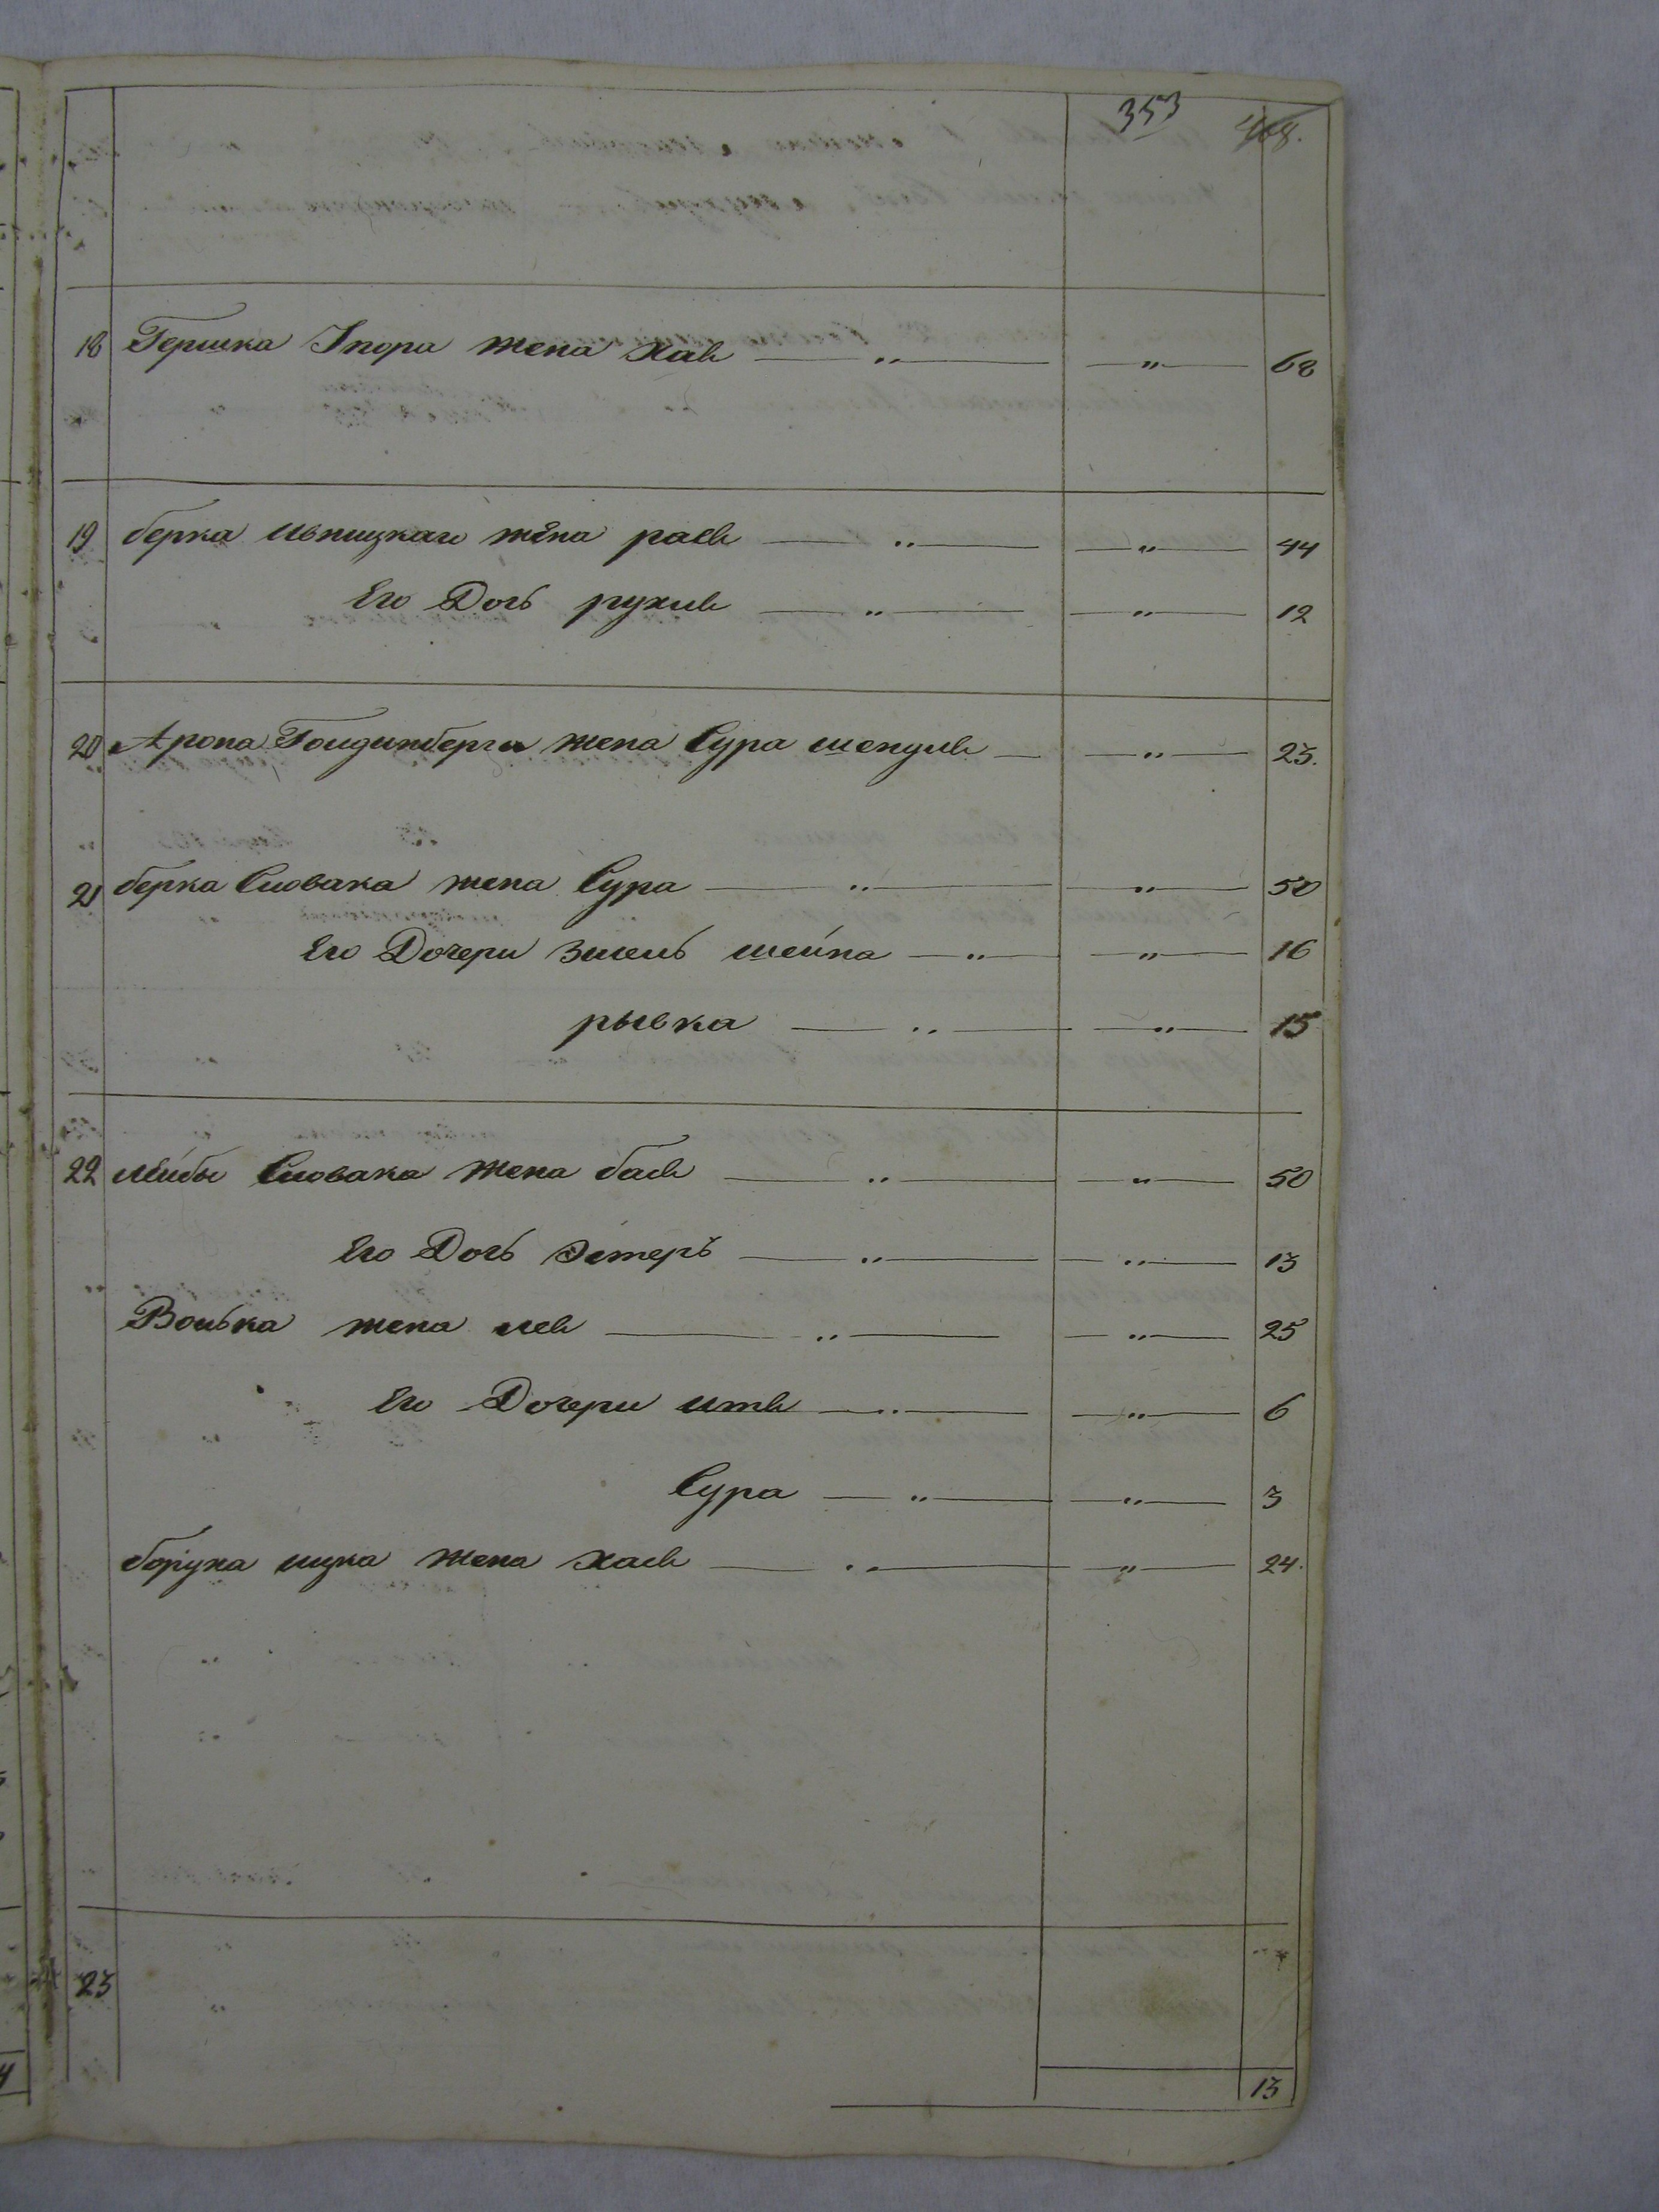 353
18 Гершка Гнора жена Хая — „ — — „ — 68
19 берка Ильницкаго жена рася — „ — — „ — 44
Его Дочь рухля — „ — — „ — 12
20 Арона Голдинберга жена Сура шендля — — „ — 23.
21 берка Словака жена Сура — „ — — „ — 50
Его Дочери Зисель шейна — „ — — „ — 16
рывка — „ — — „ — 15
22 лейбы Словака жена бася — „ — — „ — 50
Его Дочь Эстеръ — „ — — „ — 13
Волька жена лея — „ — — „ — 25
Его Дочери итя — „ — — „ — 6
Сура — „ — — „ — 3
боруха жена хася — „ — — „ — 24.
23
13